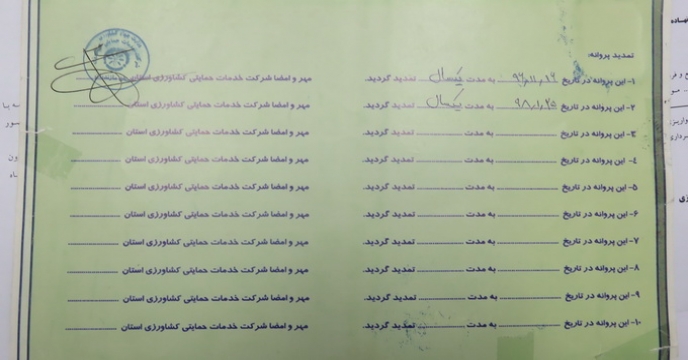 تمدید پروانه:
۱- این پروانه در تاریخ ۹۶,۱۱,۱۶ به مدت یکسال تمدید گردید. مهر و امضا شرکت خدمات حمایتی کشاورزی استان
۲- این پروانه در تاریخ ۹۸,۱,۲۵ به مدت یکسال تمدید گردید. مهر و امضا شرکت خدمات حمایتی کشاورزی استان
۳- این پروانه در تاریخ به مدت تمدید گردید. مهر و امضا شرکت خدمات حمایتی کشاورزی استان
۴- این پروانه در تاریخ به مدت تمدید گردید. مهر و امضا شرکت خدمات حمایتی کشاورزی استان
۵- این پروانه در تاریخ به مدت تمدید گردید. مهر و امضا شرکت خدمات حمایتی کشاورزی استان
۶- این پروانه در تاریخ به مدت تمدید گردید. مهر و امضا شرکت خدمات حمایتی کشاورزی استان
۷- این پروانه در تاریخ به مدت تمدید گردید. مهر و امضا شرکت خدمات حمایتی کشاورزی استان
۸- این پروانه در تاریخ به مدت تمدید گردید. مهر و امضا شرکت خدمات حمایتی کشاورزی استان
۹- این پروانه در تاریخ به مدت تمدید گردید. مهر و امضا شرکت خدمات حمایتی کشاورزی استان
۱۰- این پروانه در تاریخ به مدت تمدید گردید. مهر و امضا شرکت خدمات حمایتی کشاورزی استان